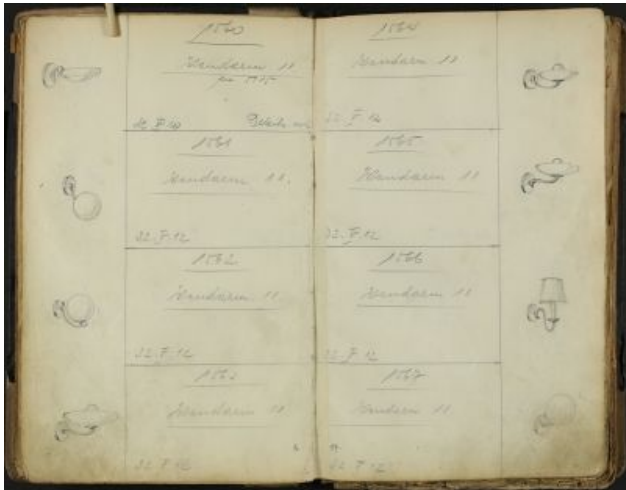 1560
Wandarm 11
32 F 12
1561
Wandarm 11.
32. F. 12
1562
Wandarm. 11
32. F. 12
1563
Wandarm 11
32 F 12
1564
Wandarm 11
32. F 12
1565
Wandarm 11
32. F. 12
1566
Wandarm 11
32. F 12
1567
Wandarm 11
32 F 12